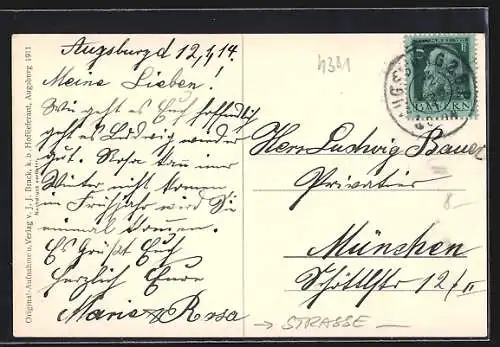 Augsburg d 12,1,14.
Meine Lieben!
Wie geht es Euch hoffentlich
geht es Ludwig wieder
gut. Rosa kann im
Winter nicht kommen
im Frühjahr wird Sie
einmal kommen.
Es Grüßt Euch
herzlich Eure
Marie & Rosa
Original-Aufnahme u. Verlag v. J. J. Brack, k. b. Hoflieferant, Augsburg 1911
4381
BAYERN
Herrn Ludwig Bauer
Privatier
8-
München
12/II
→ STRASSE -